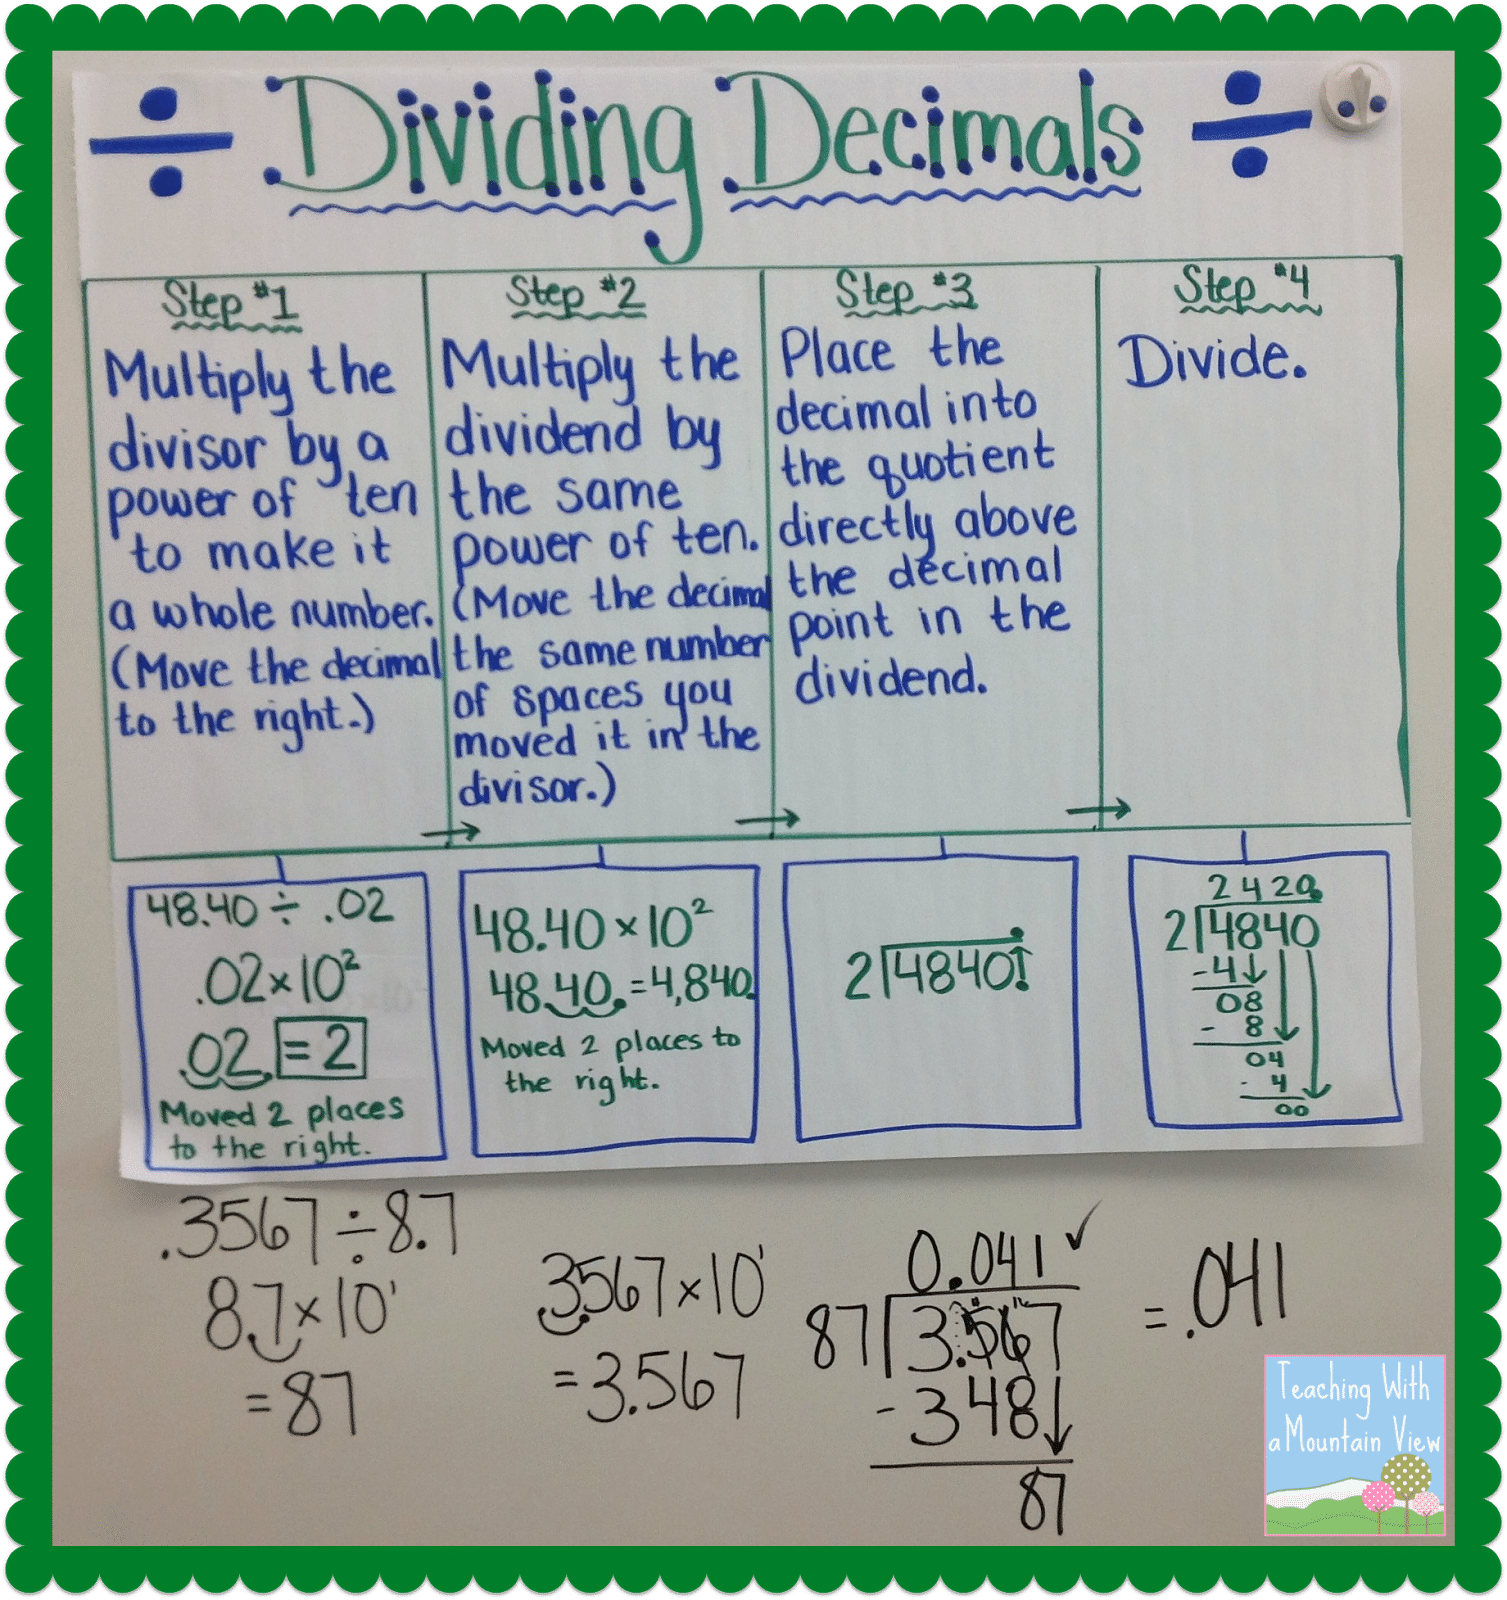 ÷ Dividing Decimals ÷
Step #1
Multiply the
divisor by a
power of ten
to make it
a whole number.
(Move the decimal
to the right.)
Step #2
Multiply the
dividend by
the same
power of ten.
(Move the decimal
the same number
of spaces you
moved it in the
divisor.)
Step #3
Place the
decimal into
the quotient
directly above
the decimal
point in the
dividend.
Step #4
Divide.
48.40 ÷ .02
.02 × 10²
.02. = 2
Moved 2 places
to the right.
48.40 × 10²
48.40. = 4,840.
Moved 2 places to
the right.
2⟌4840.
2420.
2⟌4840
-4
08
- 8
04
- 4
00
.3567 ÷ 8.7
8.7 × 10¹
= 87
.3567 × 10¹
= 3.567
0.041 ✓
87⟌3.567
- 348
87
= .041
Teaching With
a Mountain View